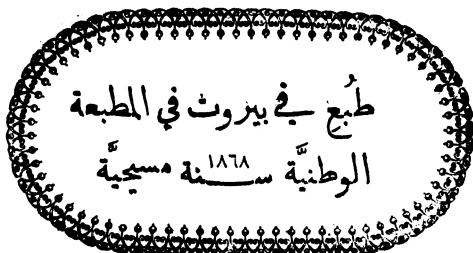 طُبِع في بيروت في المطبعة
الوطنيَّة سنة ١٨٦٨ مسيحيَّة